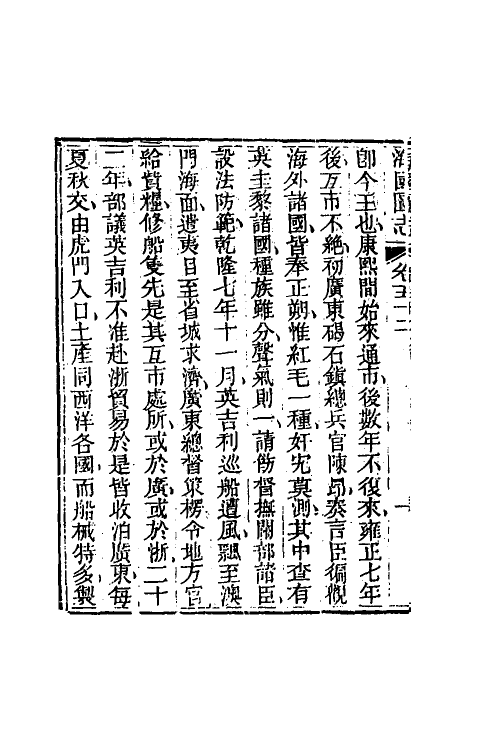 海國圖志 卷五十二
卽今王也康熙間始來通市後數年不復來雍正七年
後互市不絶初廣東碣石鎮總兵官陳昂奏言臣徧觀
海外諸國皆奉正朔惟紅毛一種奸宄莫測其中查有
英圭黎諸國種族雖分聲氣則一請飭督撫關部諸臣
設法防範乾隆七年十一月英吉利巡船遭風飄至澳
門海面遣夷目至省城求濟廣東總督策楞令地方官
給貲糧修船隻先是其互市處所或於廣或於浙二十
二年部議英吉利不准赴浙貿易於是皆收泊廣東每
夏秋交由虎門入口土產同西洋各國而船械特多製